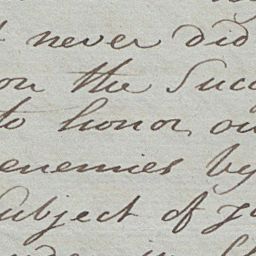 never did
on the Suc
to honor, ou
enemies by
Subject of